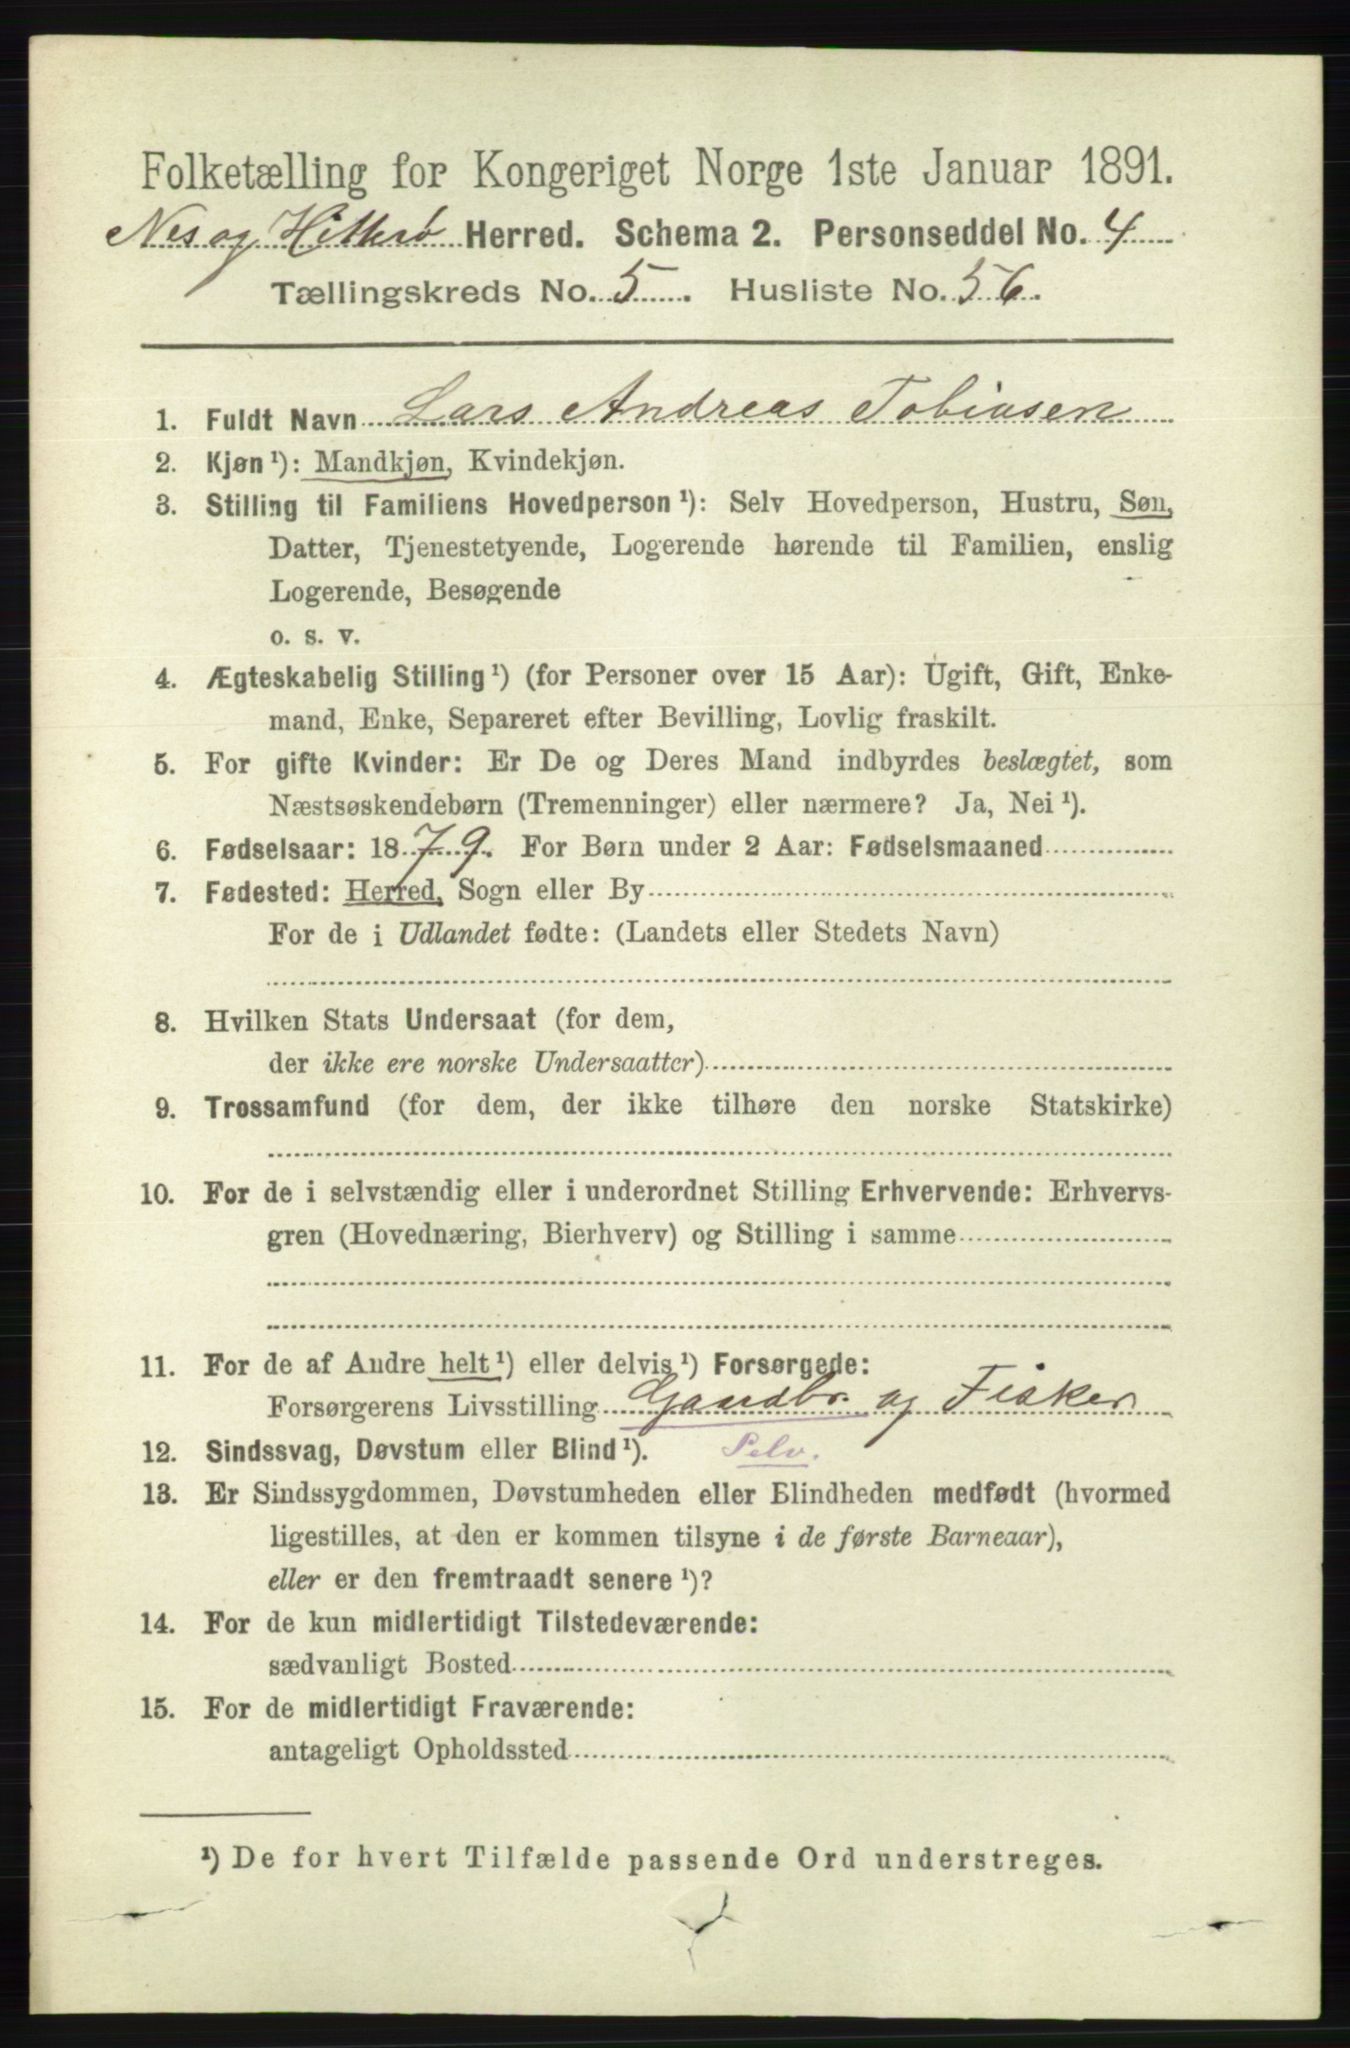 Folketælling for Kongeriget Norge 1ste Januar 1891.
Nes og Hitterø Herred. Schema 2. Personseddel No. 4
Tællingskreds No. 5. Husliste No. 56.
1. Fuldt Navn Lars Andreas Tobiasen
2. Kjøn ¹): Mandkjøn, Kvindekjøn.
3. Stilling til Familiens Hovedperson ¹): Selv Hovedperson, Hustru, Søn,
Datter, Tjenestetyende, Logerende hørende til Familien, enslig
Logerende, Besøgende
o. s. v.
4. Ægteskabelig Stilling ¹) (for Personer over 15 Aar): Ugift, Gift, Enke-
mand, Enke, Separeret efter Bevilling, Lovlig fraskilt.
5. For gifte Kvinder: Er De og Deres Mand indbyrdes beslægtet, som
Næstsøskendebørn (Tremenninger) eller nærmere? Ja, Nei ¹).
6. Fødselsaar: 1879. For Børn under 2 Aar: Fødselsmaaned
7. Fødested: Herred, Sogn eller By
For de i Udlandet fødte: (Landets eller Stedets Navn)
8. Hvilken Stats Undersaat (for dem,
der ikke ere norske Undersaatter)
9. Trossamfund (for dem, der ikke tilhøre den norske Statskirke)
10. For de i selvstændig eller i underordnet Stilling Erhvervende: Erhvervs-
gren (Hovednæring, Bierhverv) og Stilling i samme
11. For de af Andre helt ¹) eller delvis ¹) Forsørgede:
Forsørgerens Livsstilling Gaardbr. og Fisker
12. Sindssvag, Døvstum eller Blind ¹). Selv.
13. Er Sindssygdommen, Døvstumheden eller Blindheden medfødt (hvormed
ligestilles, at den er kommen tilsyne i de første Barneaar),
eller er den fremtraadt senere ¹)?
14. For de kun midlertidigt Tilstedeværende:
sædvanligt Bosted
15. For de midlertidigt Fraværende:
antageligt Opholdssted
¹) De for hvert Tilfælde passende Ord understreges.